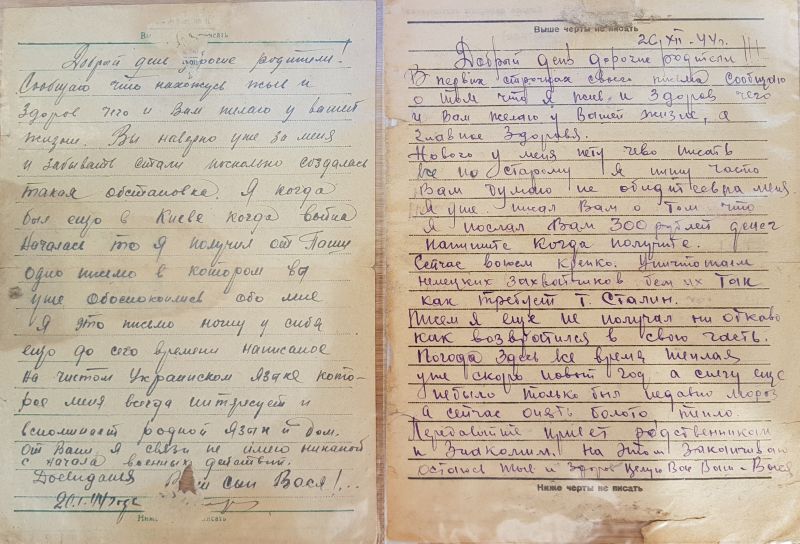 Добрый день дорогие родители!
Сообщаю что нахожусь жив и
здоров чего и Вам желаю у вашей
жизни. Вы наверно уже за меня
и забывать стали поскольно создалась
такая обстановка. Я когда
был ещо в Киеве когда война
началась то я получил от
одно письмо в котором вы
уже обоспокоились обо мне
Я это письмо ношу у сибя
ещо до сего времени написаное
на чистом Украинском языке кото-
рое меня всегда интересует и
вспоминает родной язык и дом.
От Ваш я связи не имею никакой
с начала военных действий.
Досвидания Ваш сын Вася!..
20.I.44 года
Выше черты не писать
20/XII-44г.
Добрый день дорогие родители!!!
В первих строчках своего письма сообщаю
о том что я жив и здоров чего
и вам желаю у Вашей жизне, а
главное здоровя.
Нового у меня нету чево писать
все по старому я пишу часто
Вам думаю не обидитесь на меня.
Я уже писал Вам о том что
я послал Вам 300 рублей денег
напишите когда получите.
Сейчас воюем крепко. Уничтожаем
немецких захватчиков бем их так
как требует т. Сталин.
Писем я еще не получал ни откаво
как возвратился в свою часть.
Погода здесь все время теплая
уже скоро новый год а снегу еще
небыло только был недавно мороз
а сейчас опять болото тепло.
Передавайте привет родственикам
и знаколим. На этом заканчиваю
остаюсь жив и здоров целую Вас Ваш - Вася
Ниже черты не писать